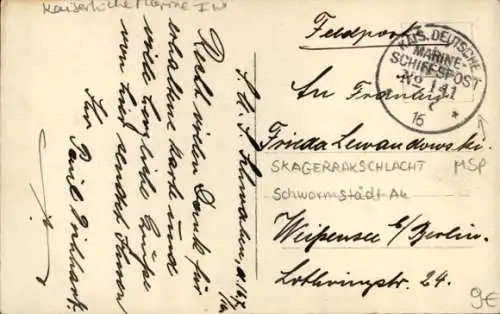 Kaiserliche Marine I W
Feldpost
KAIS. DEUTSCHE
MARINE-
SCHIFFSPOST
No 191
16 *
An Fräulein
Frida Lewandowski.
SKAGERRAKSCHLACHT MSP
Schwormstädt A4
Weißensee b/Berlin.
Lothringstr. 24.
9€
S. M. S. d. 16.7.
Recht vielen Dank für
erhaltene Karte und
viele herzliche Grüße
von hier sendet Ihnen
Ihr Paul